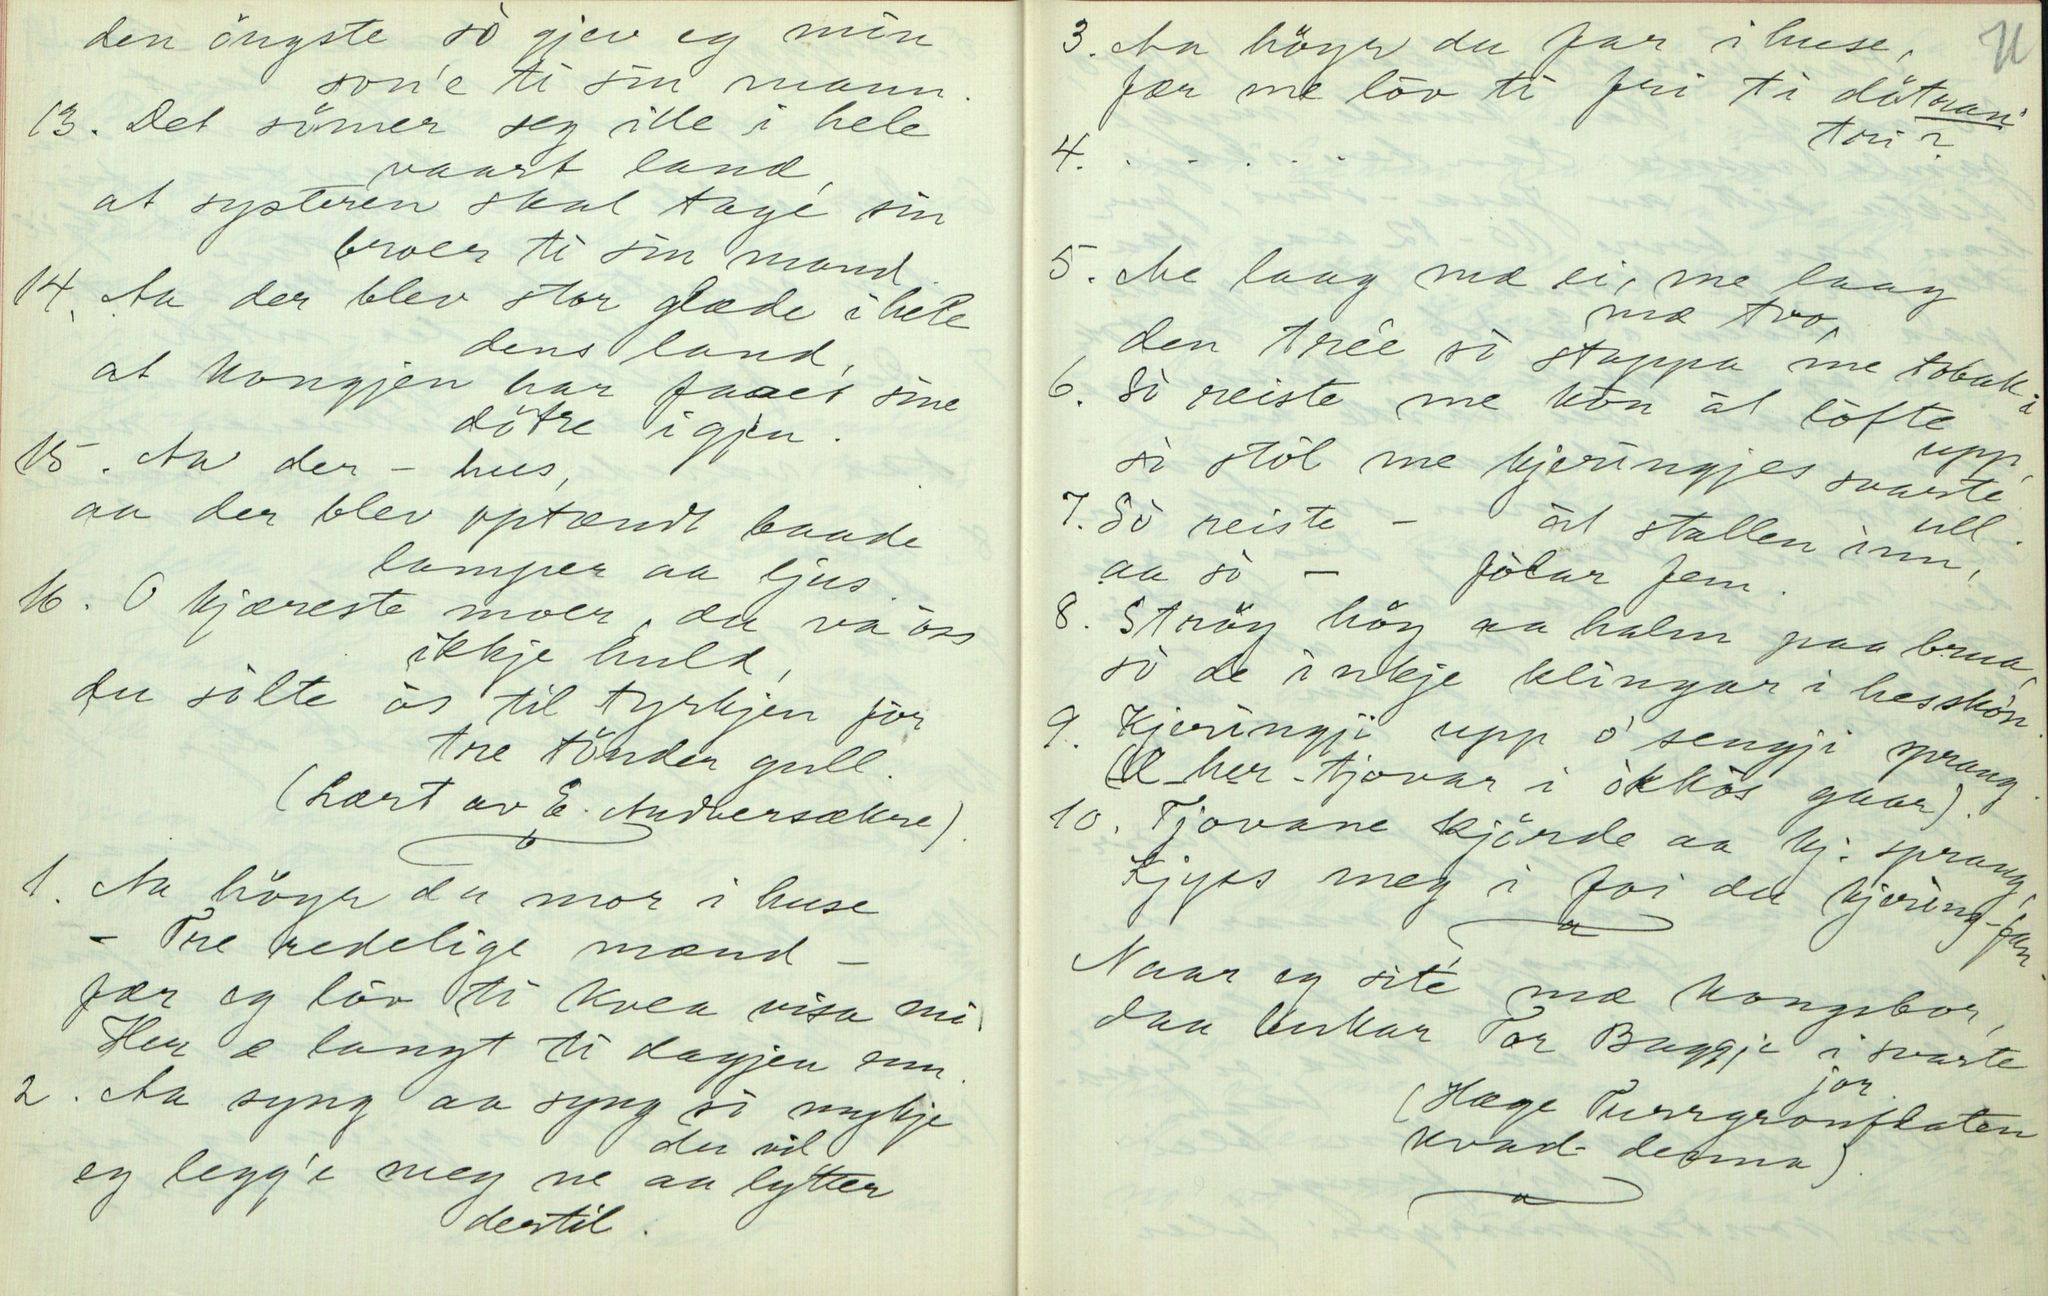 den öngste so gjev eg min
son'e ti sin mann.
13. Det sömer seg ille i hele
vaart land,
at systeren skal tage sin
broer ti sin mand.
14. Aa der blev stor glæde i hele
dens land,
at kongjen har faaet sine
dötre igjen.
15. Aa der – hus,
aa der blev optændt baade
lamper aa ljus.
16. O kjæreste moer, du va öss
ikkje huld,
du sölte ös til tyrkjen för
tre tönder gull.
(Lært av E. Audbersækre).
1. Aa höyr du mor i huse
– Tre redelige mænd –
fær eg löv ti kvea visa mi
Her æ langt ti dagjen enn.
2. Aa syng aa syng so mykje
du vil
eg legg'e meg ne aa lytter
dertil.
3. Aa höyr du far i huse,
fær me löv ti fri ti döt<br>ran'
tri?
4. . . . . .
5. Me laag mæ ei, me laag
mæ tvo,
den trée so stappa me tobak i
6. So reiste me kon åt löfte
upp,
so stol me kjeringjes svarte
ull.
7. So reiste – åt stallen inn,
aa so – folar fem.
8. Ströy höy aa halm paa brua,
so de inkje klingar i hesskön.
9. Kjeringji upp o' sengji sprang.
(Æ her tjovar i okkos gaar).
10. Tjovane kjörde aa kj. sprang,
Kjyss meg i foi du kjering-fan
Naar eg site mæ kongsbor,
daa luskar Tor Baggje i svarte
jor.
(Hæge Turrgronflaten
kvad denna).